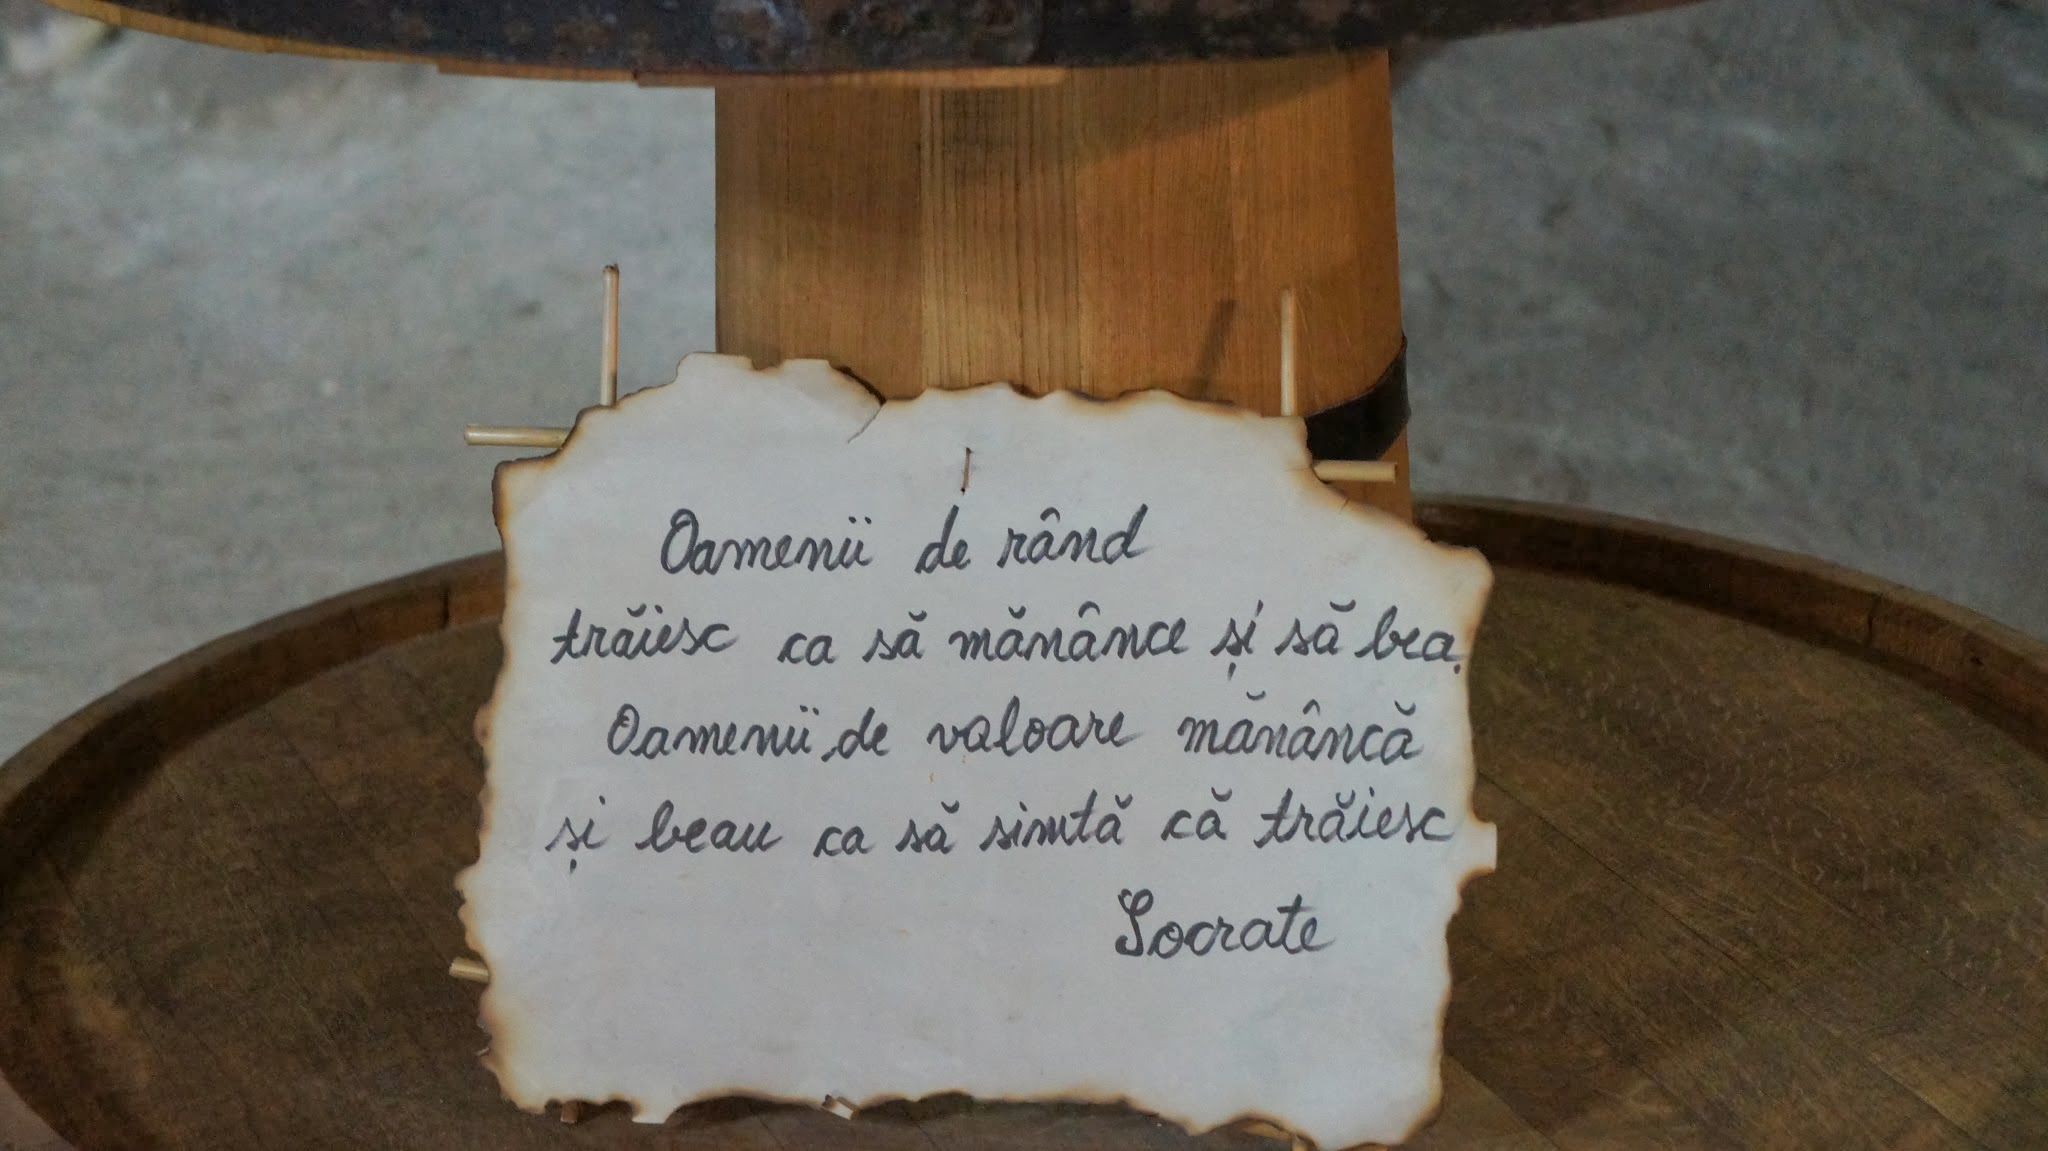 Oamenii de rând
trăiesc ca să mănânce și să bea.
Oamenii de valoare mănâncă
și beau ca să simtă că trăiesc
Socrate